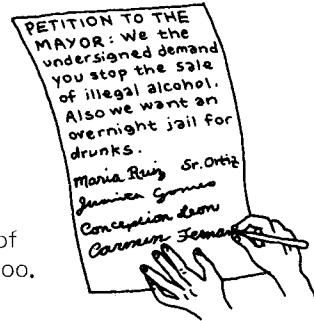 PETITION TO THE
MAYOR: We the
undersigned demand
you stop the sale
of illegal alcohol.
Also we want an
overnight jail for
drunks.
Maria Ruiz Sr. Ortiz
Juanita Gomes
Conception Leon
Carmen Fernan
of
oo.